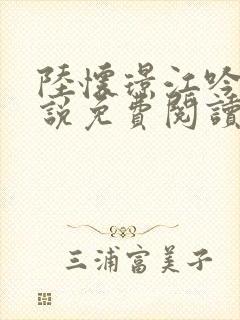 陸懷璟江吟
說免費閱讀
三浦富美子